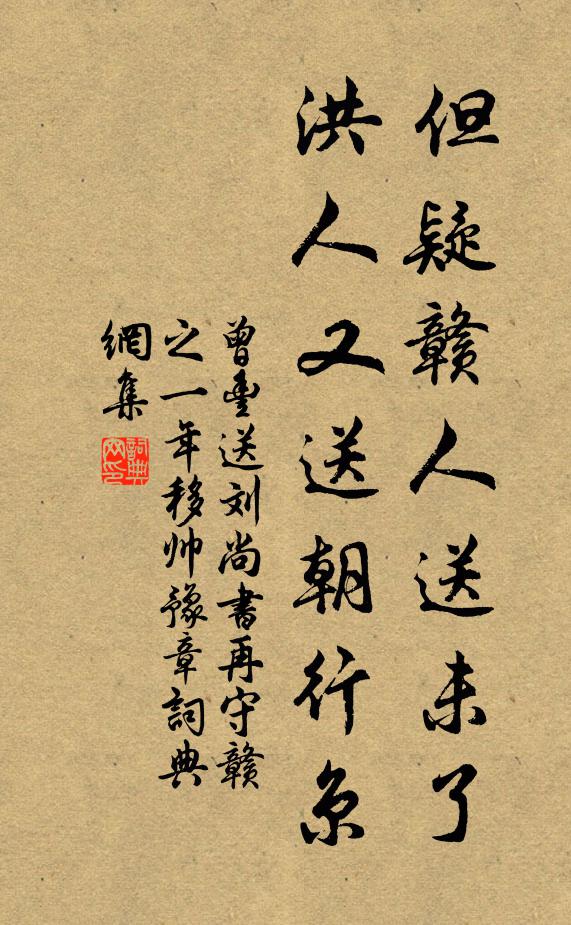 但疑赣人送未了
洪人又送朝行京
曾豊送刘尚書再守赣
之一年移帅豫章詞典
網集
詞典
网印